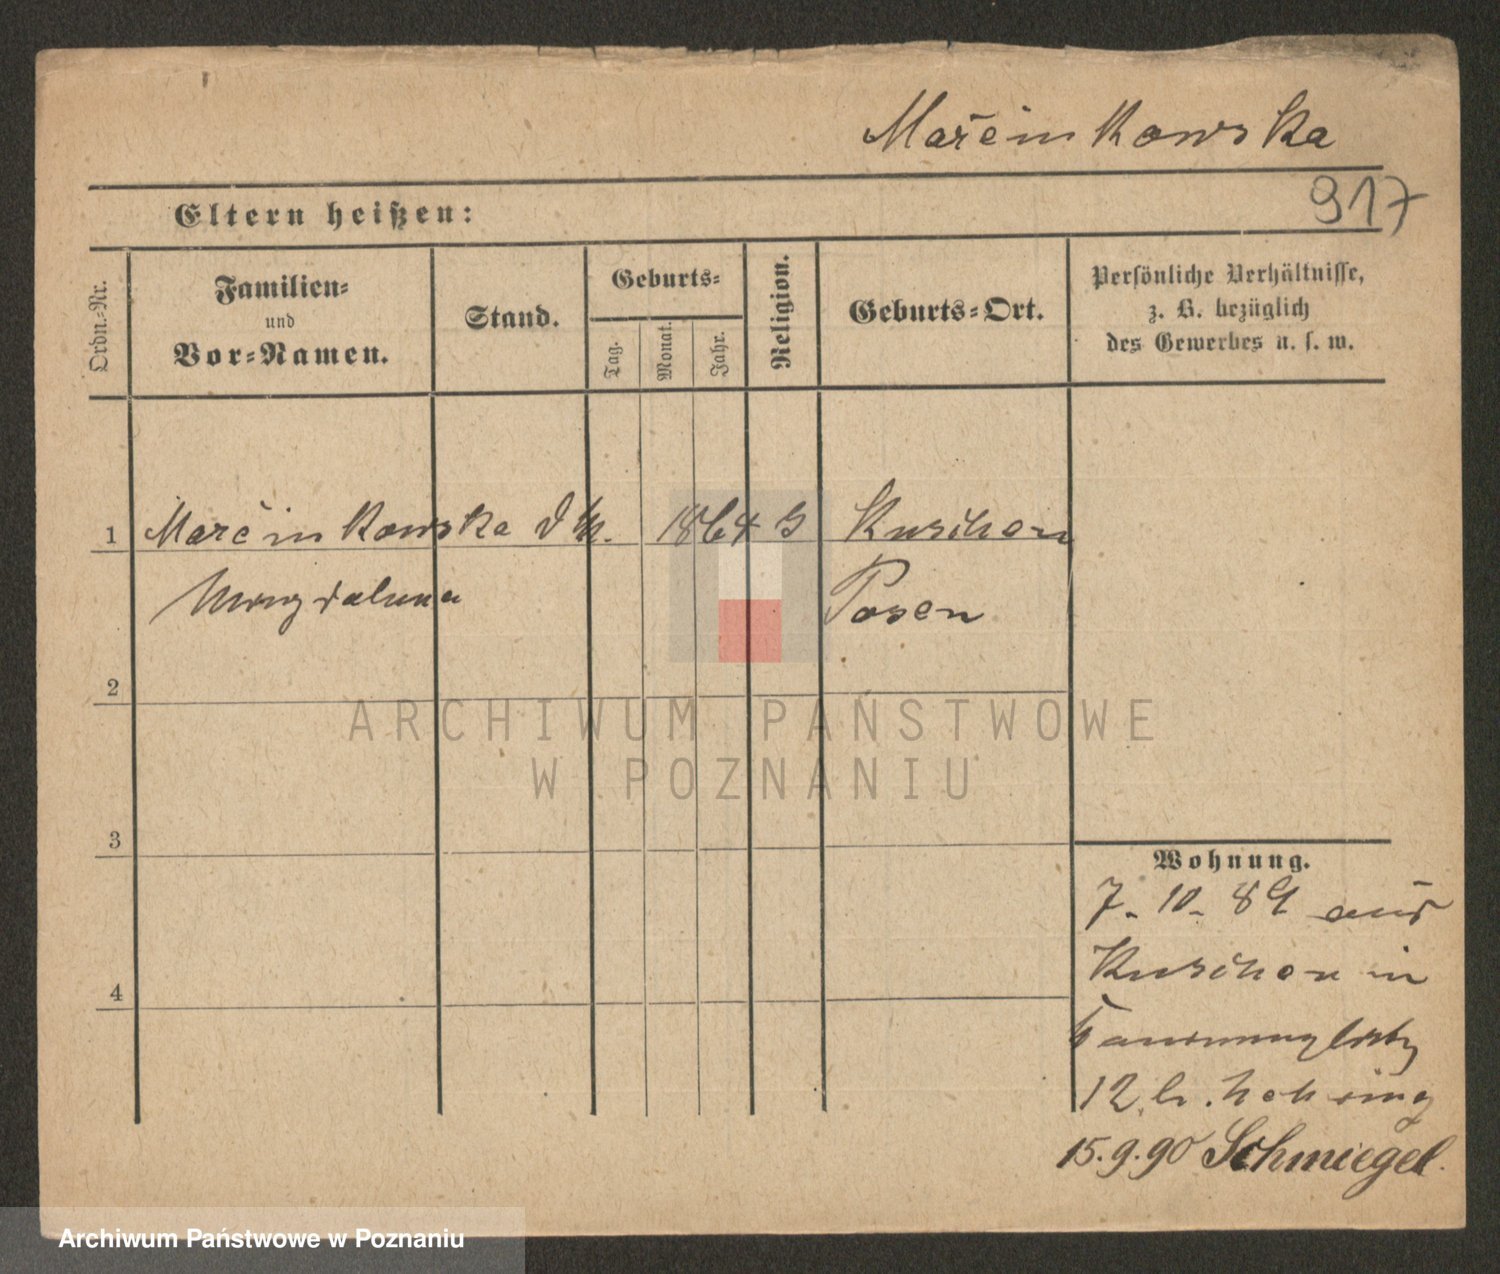 Marcinkowska
917
Eltern heißen:
Ordn.-Nr.
Familien-
und
Vor-Namen.
Stand.
Geburts-
Tag.
Monat.
Jahr.
Religion.
Geburts-Ort.
Persönliche Verhältnisse,
z. B. bezüglich
des Gewerbes u. s. w.
1 Marcinkowska 1864 Kuschen
Magdalena Posen
2
ARCHIWUM PAŃSTWOWE
W POZNANIU
3
4
Wohnung.
7. 10. 89 aus
Kuschen in
12 b.
15.9.90 Schmiegel.
Archiwum Państwowe w Poznaniu